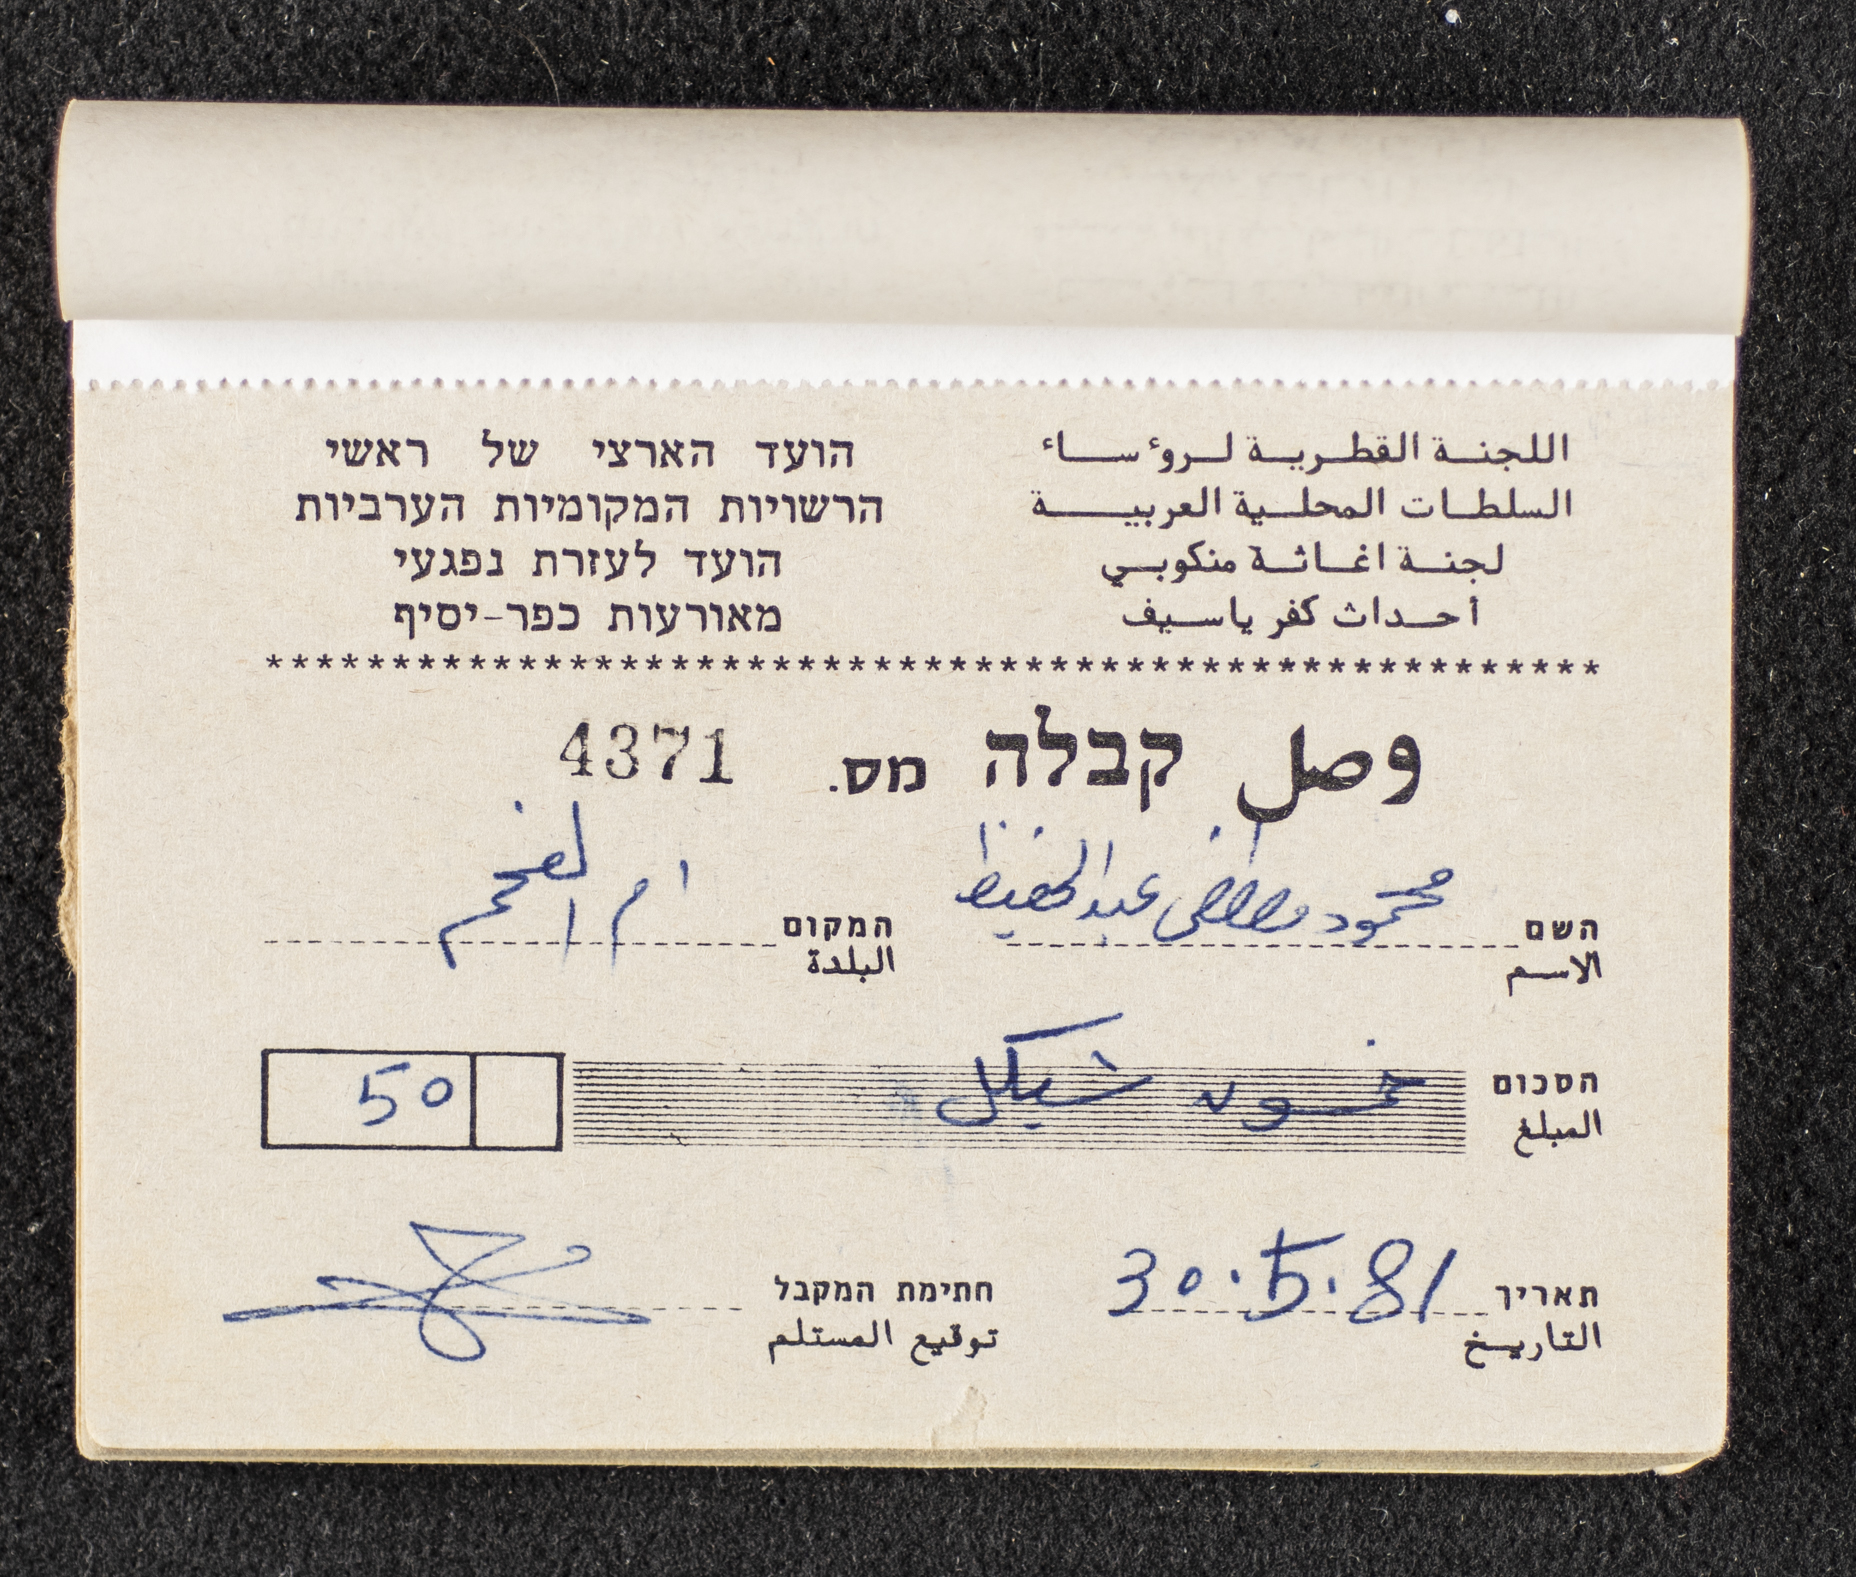 اللجنة القطرية لروءساء
السلطات المحلية العربية
لجنة اغاثة منكوبي
أحداث كفر ياسيف
הועד הארצי של ראשי
הרשויות המקומיות הערביות
הועד לעזרת נפגעי
מאורעות כפר-יסיף
****************************************************
وصل קבלה מס. 4371
השם محمود مصطفى عبد الحفيظ
الاسم
המקום ام الفحم
البلدة
הסכום خمسون شيكل 50
المبلغ
תאריך 30.5.81
التاريخ
חתימת המקבל
توقيع المستلم